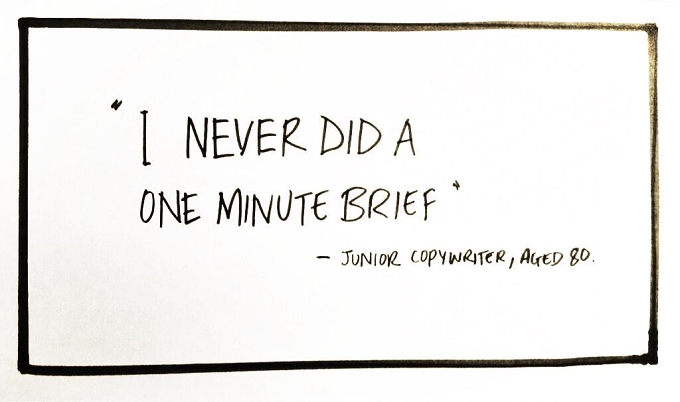 "I NEVER DID A
ONE MINUTE BRIEF"
- JUNIOR COPYWRITER, AGED 80.